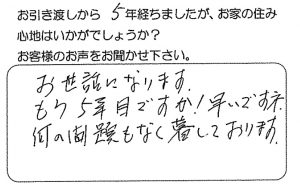 お引き渡しから5年経ちましたが、お家の住み
心地はいかがでしょうか?
お客様のお声をお聞かせ下さい。
お世話になります。
もう5年目ですか!早いですネ
何の問題もなく暮しております。